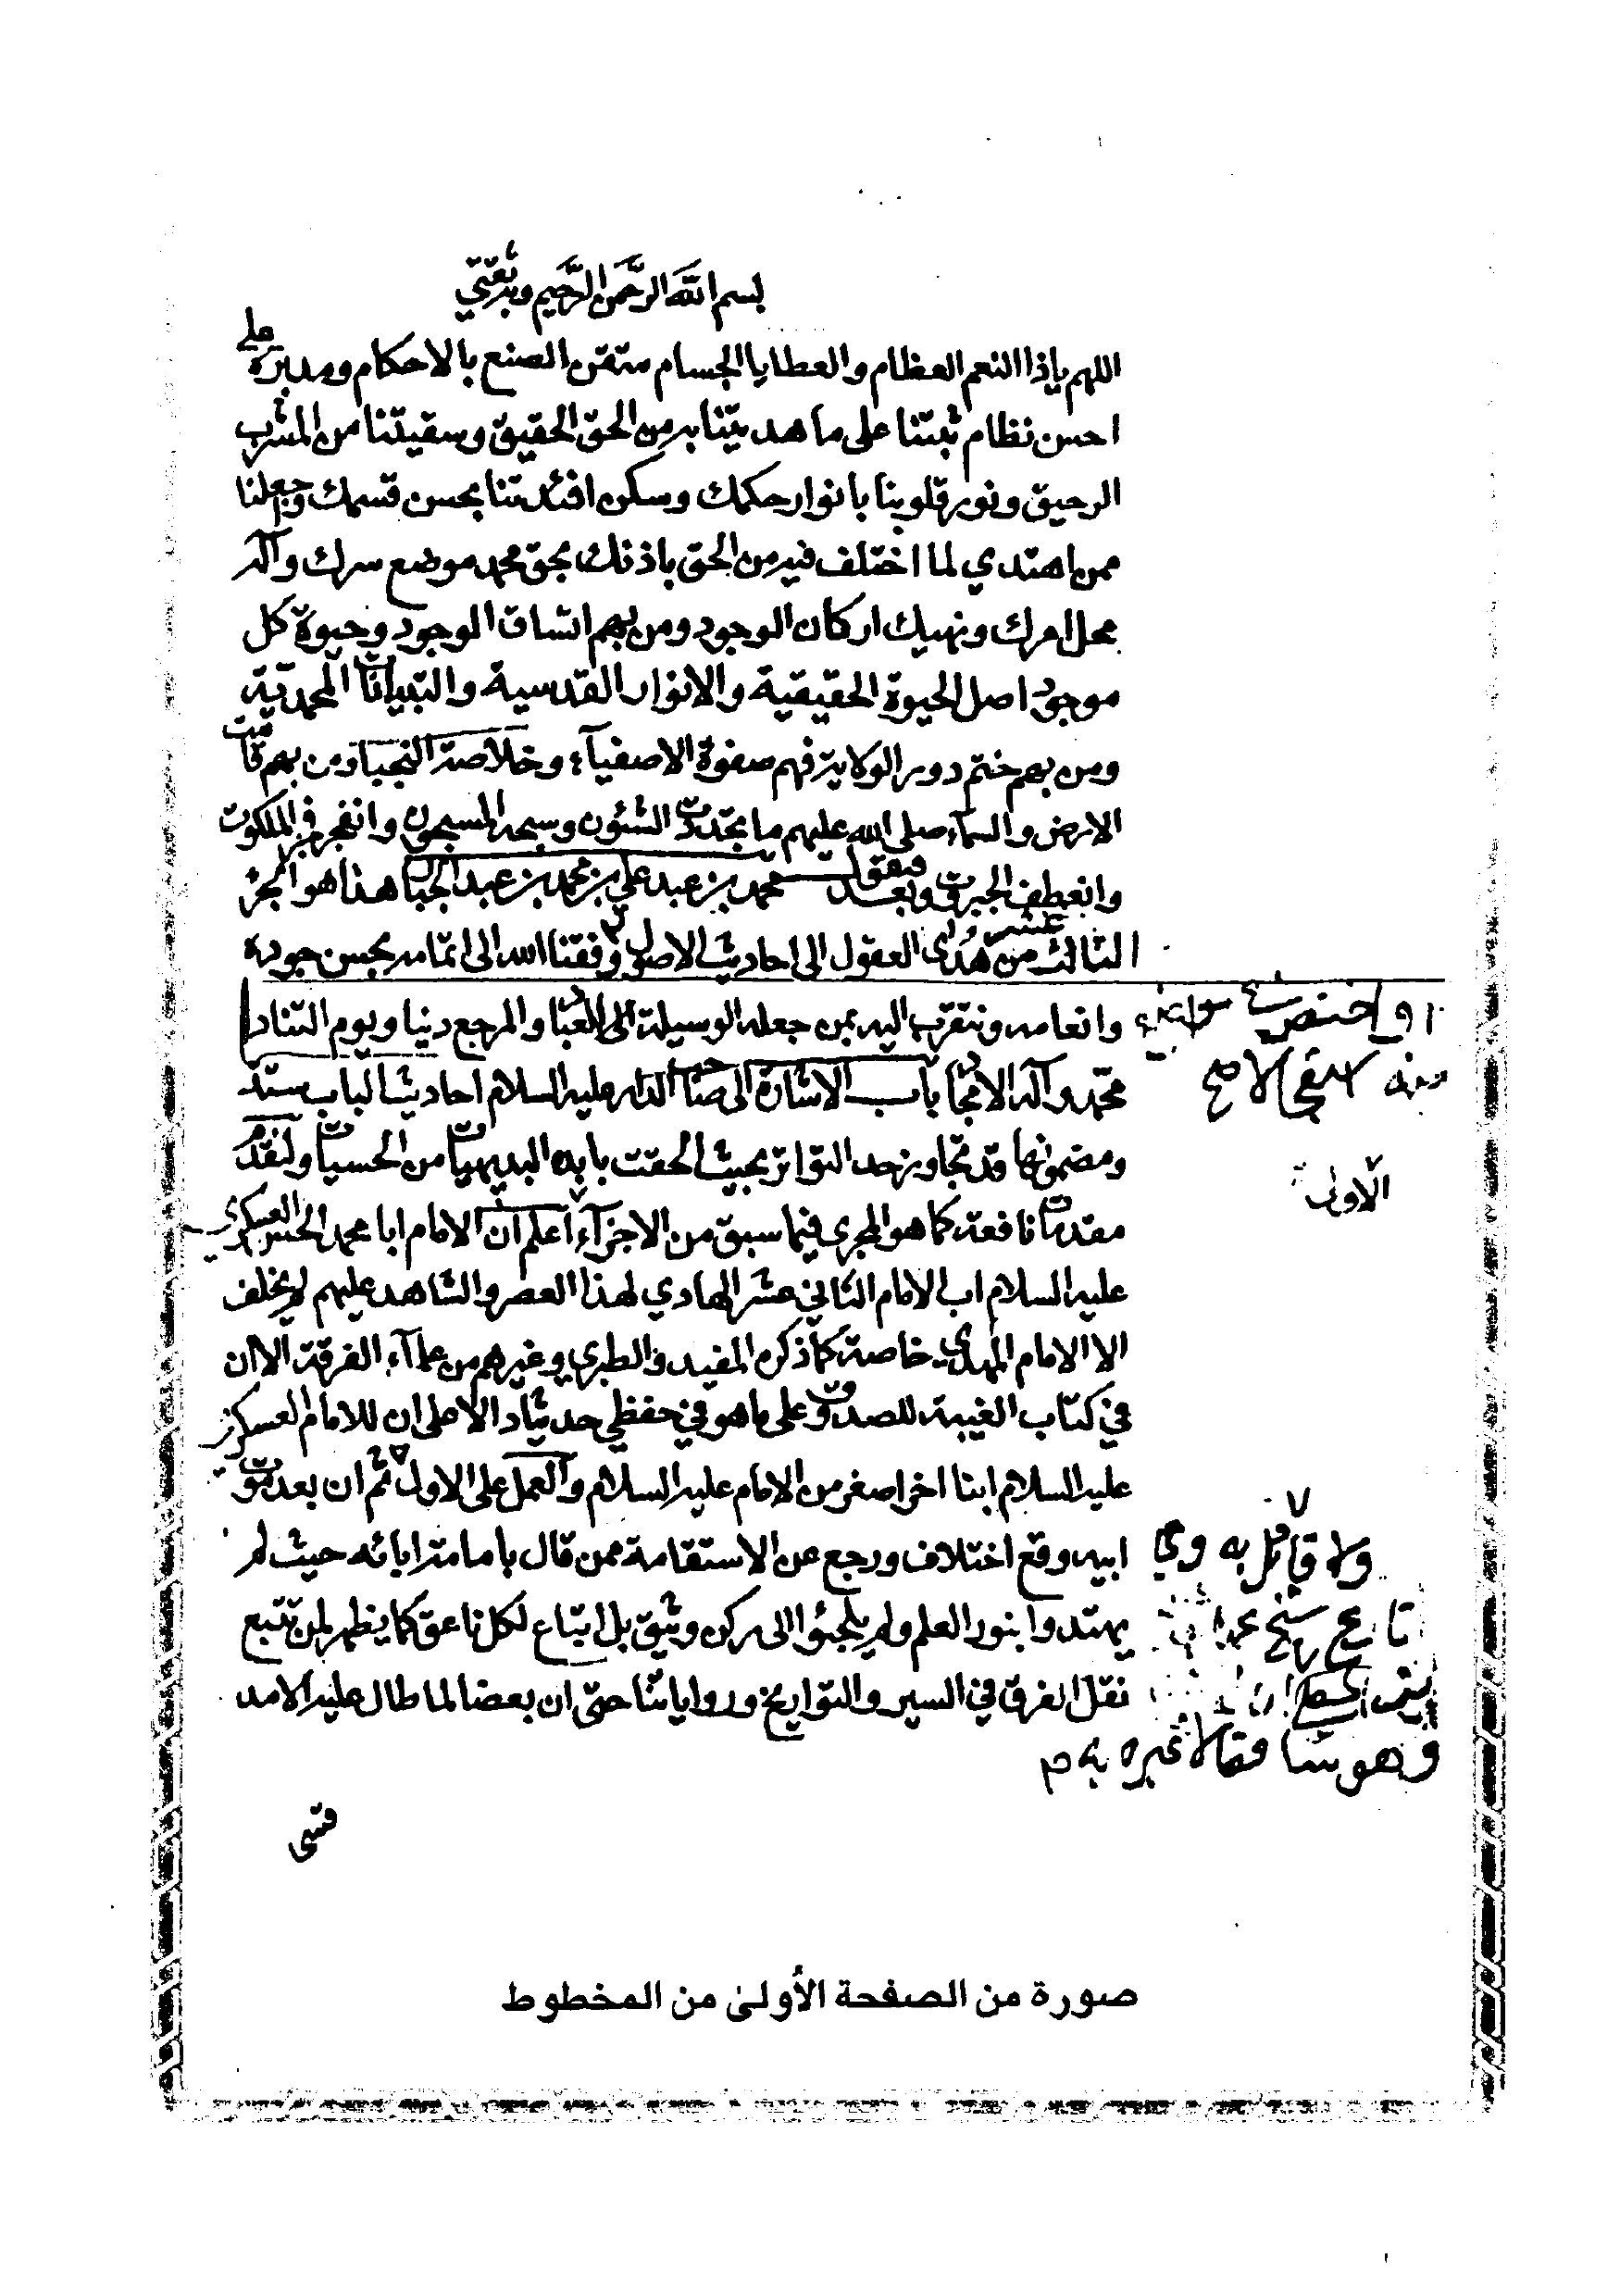 بسم الله الرَّحمن الرَّحيم وبه ثقتي
اللهم ياذا النعم العظام والعطايا الجسام متقن الصنع بالاحكام ومدبره على
احسن نظام ثبتنا على ما هديتنا به من الحق الحقيق وسقيتنا من المشرب
الرحيق ونور قلوبنا بانوار حكمك وسكن افئدتنا بحسن قسمك وجعلنا
ممن اهتدي لما اختلف فيه من الحق باذنك بحق محمد موضع سرك وآله
محل امرك ونهيك اركان الوجود ومن بهم انساق الوجود وحيوة كل
موجود اصل الحيوة الحقيقية والانوار القدسية والتبيانات المحمدية
ومن بهم ختم دور الولاية فهم صفوة الاصفيآء وخلاصة النجبا ومن بهم قامت
الارض والسمآء صلى الله عليهم ما تجددت الشئون وسبحه المسبحون وانفجر فجر الملكوت
وانعطف الجبروت وبعد فيقول محمد بن عبد علي بن محمد بن عبد الجبار هذا هو الجزء
الثالث عشر من هدى العقول الى احاديث الاصول وفقنا الله الى اتمامه بحسن جوده
وانعامه ونتقرب اليه بمن جعله الوسيلة الى العباد والمرجع دنيا ويوم التناد
محمد وآله الامجاد باب الاشارة الى صاحب الدار عليه السلام احاديث الباب ستة
ومضمونها قد تجاوز حد التواتر بحيث الحقت بابده البديهيات من الحسيات ولنقدم
مقدمات نافعة كما هو المجرى فيما سبق من الاجزآء اعلم ان الامام ابا محمد الحسن العسكري
عليه السلام اب الامام الثاني عشر الهادي لهذا العصر والشاهد عليهم لم يخلف
الا الامام المهدي خاصة كما ذكره المفيد والطبري وغيرهم من علمآء الفرقة الا ان
في كتاب الغيبة للصدوق على ما هو في حفظي حديثا دالا على ان للامام العسكري
عليه السلام ابنا اخر اصغر من الامام عليه السلام والعمل على الاول ثم ان بعد موت
ابيه وقع اختلاف ورجع عن الاستقامة ممن قال بامامة ابائه حيث لم
يهتدوا بنور العلم ولم يلجئوا الى ركن وثيق بل اتباع لكل ناعق كما يظهر لمن تتبع
نقل الفرق في السير والتواريخ ورواياتنا حتى ان بعضا لما طال عليه الامد
الاولى
ولا قائل به وفي
تاريخ
وهو
قسى
صورة من الصفحة الأولىٰ من المخطوط